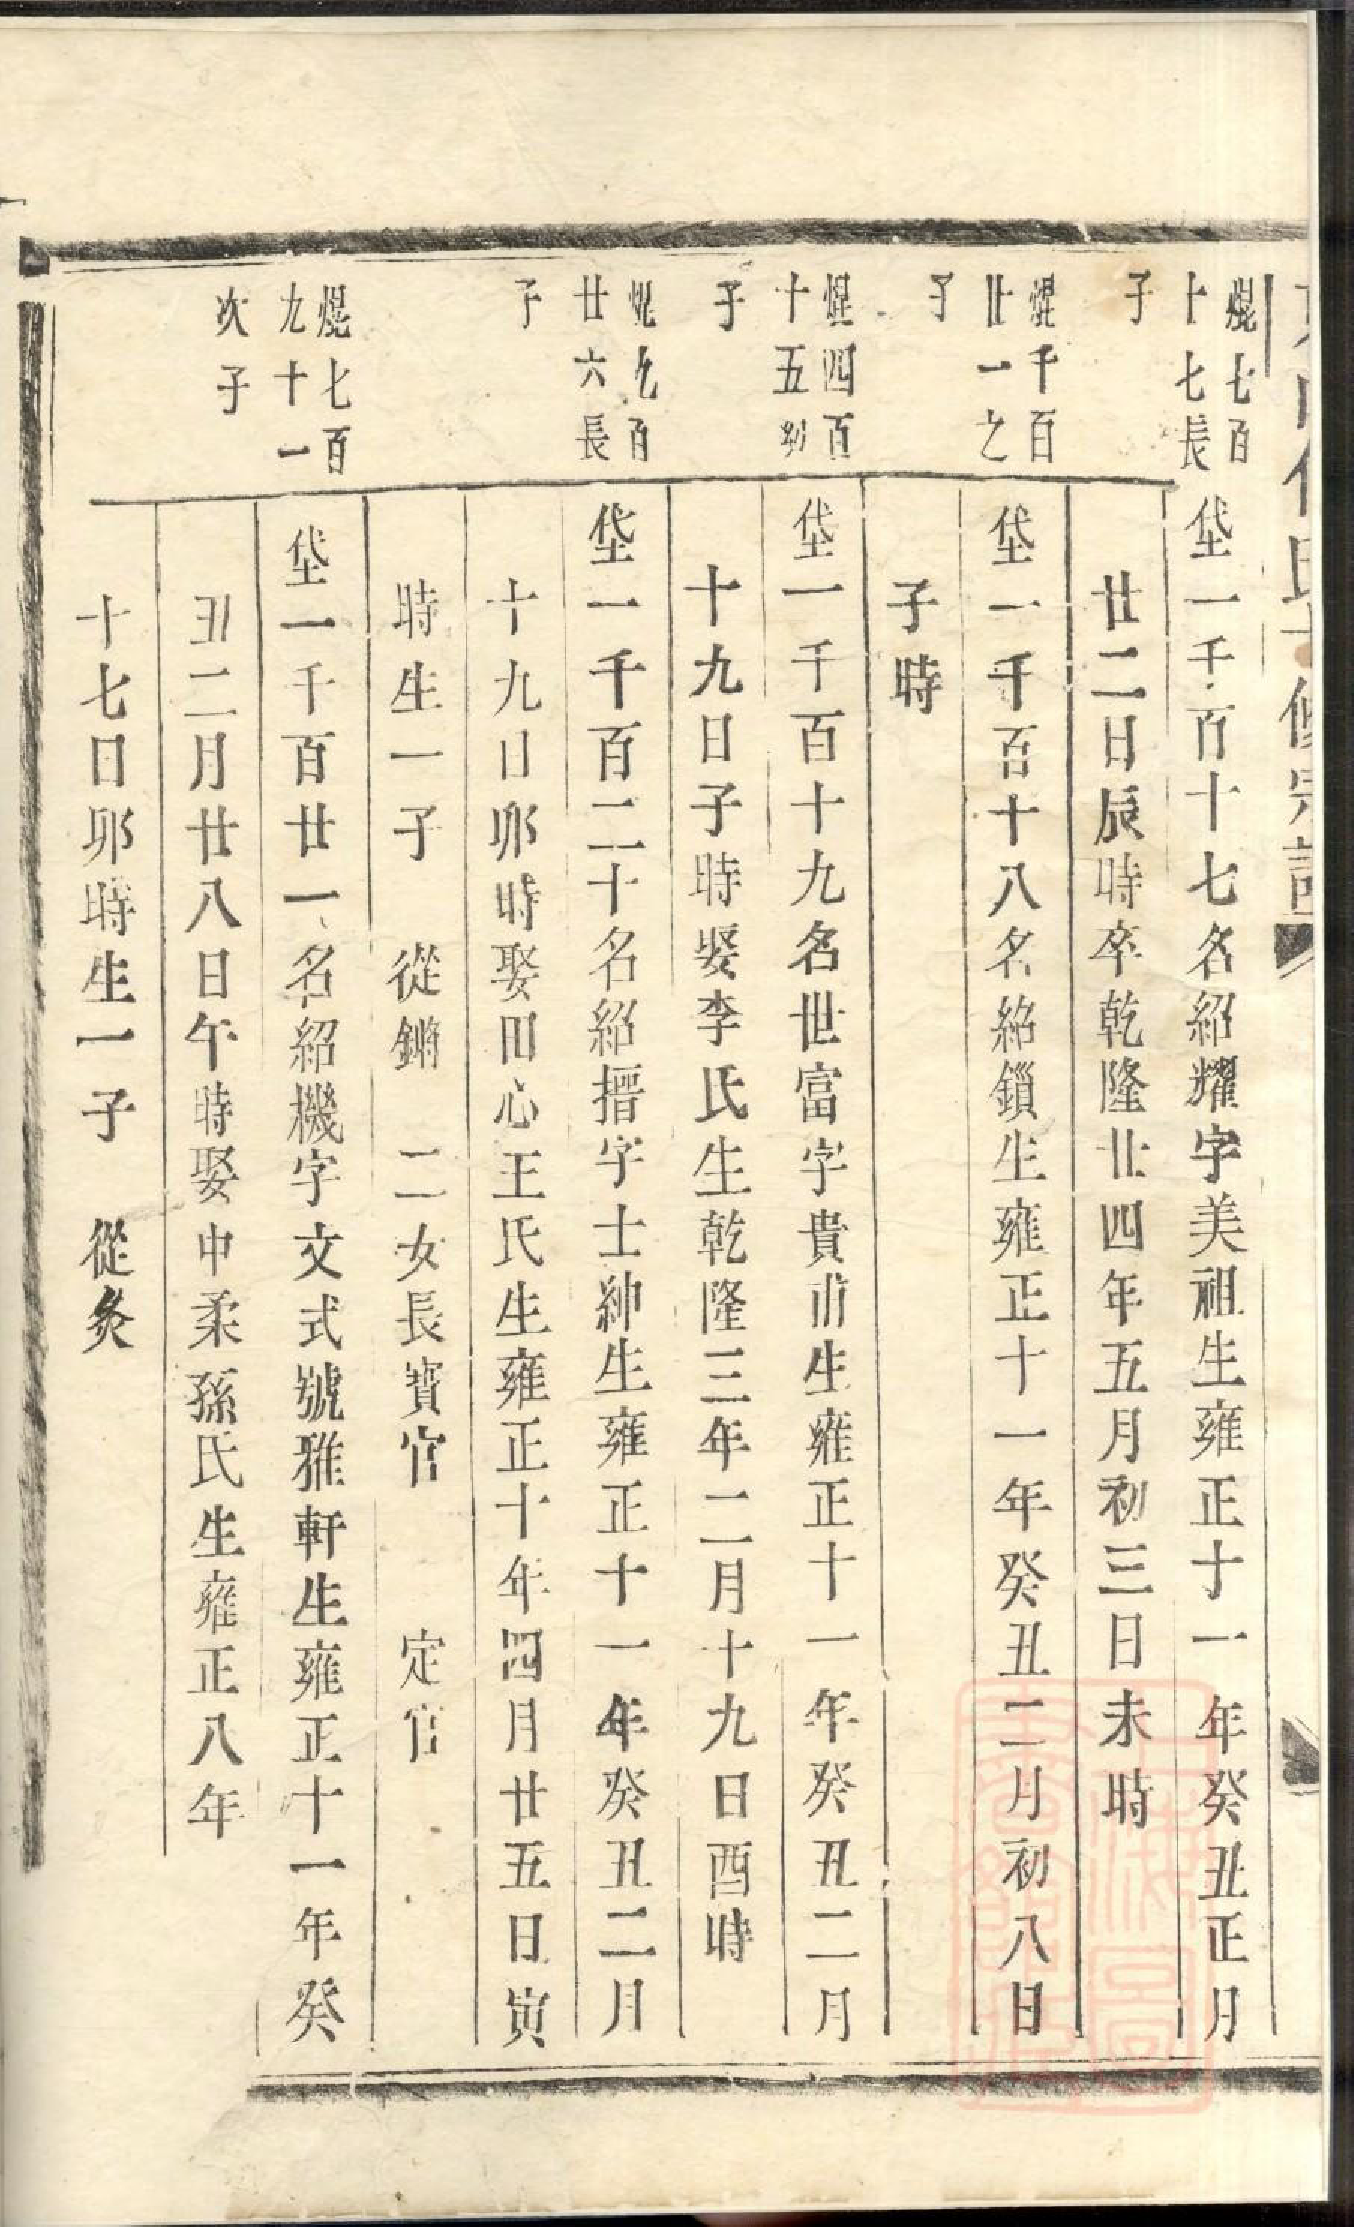 焜七百
十七長
子
垈一千百十七名紹耀字美祖生雍正十一年癸丑正月
廿二日辰時卒乾隆廿四年五月初三日未時
焜千百
廿一之
子
垈一千百十八名紹鎖生雍正十一年癸丑二月初八日
子時
焜四百
十五幼
子
垈一千百十九名世富字貴甫生雍正十一年癸丑二月
十九日子時娶李氏生乾隆三年二月十九日酉時
焜九百
廿六長
子
垈一千百二十名紹搢字士紳生雍正十一年癸丑二月
十九日卯時娶田心王氏生雍正十年四月廿五日寅
時生一子 從鏘 二女長寶官 定官
焜七百
九十一
次子
垈一千百廿一名紹機字文式號雅軒生雍正十一年癸
丑二月廿八日午時娶中柔孫氏生雍正八年
十七日卯時生一子 從灸